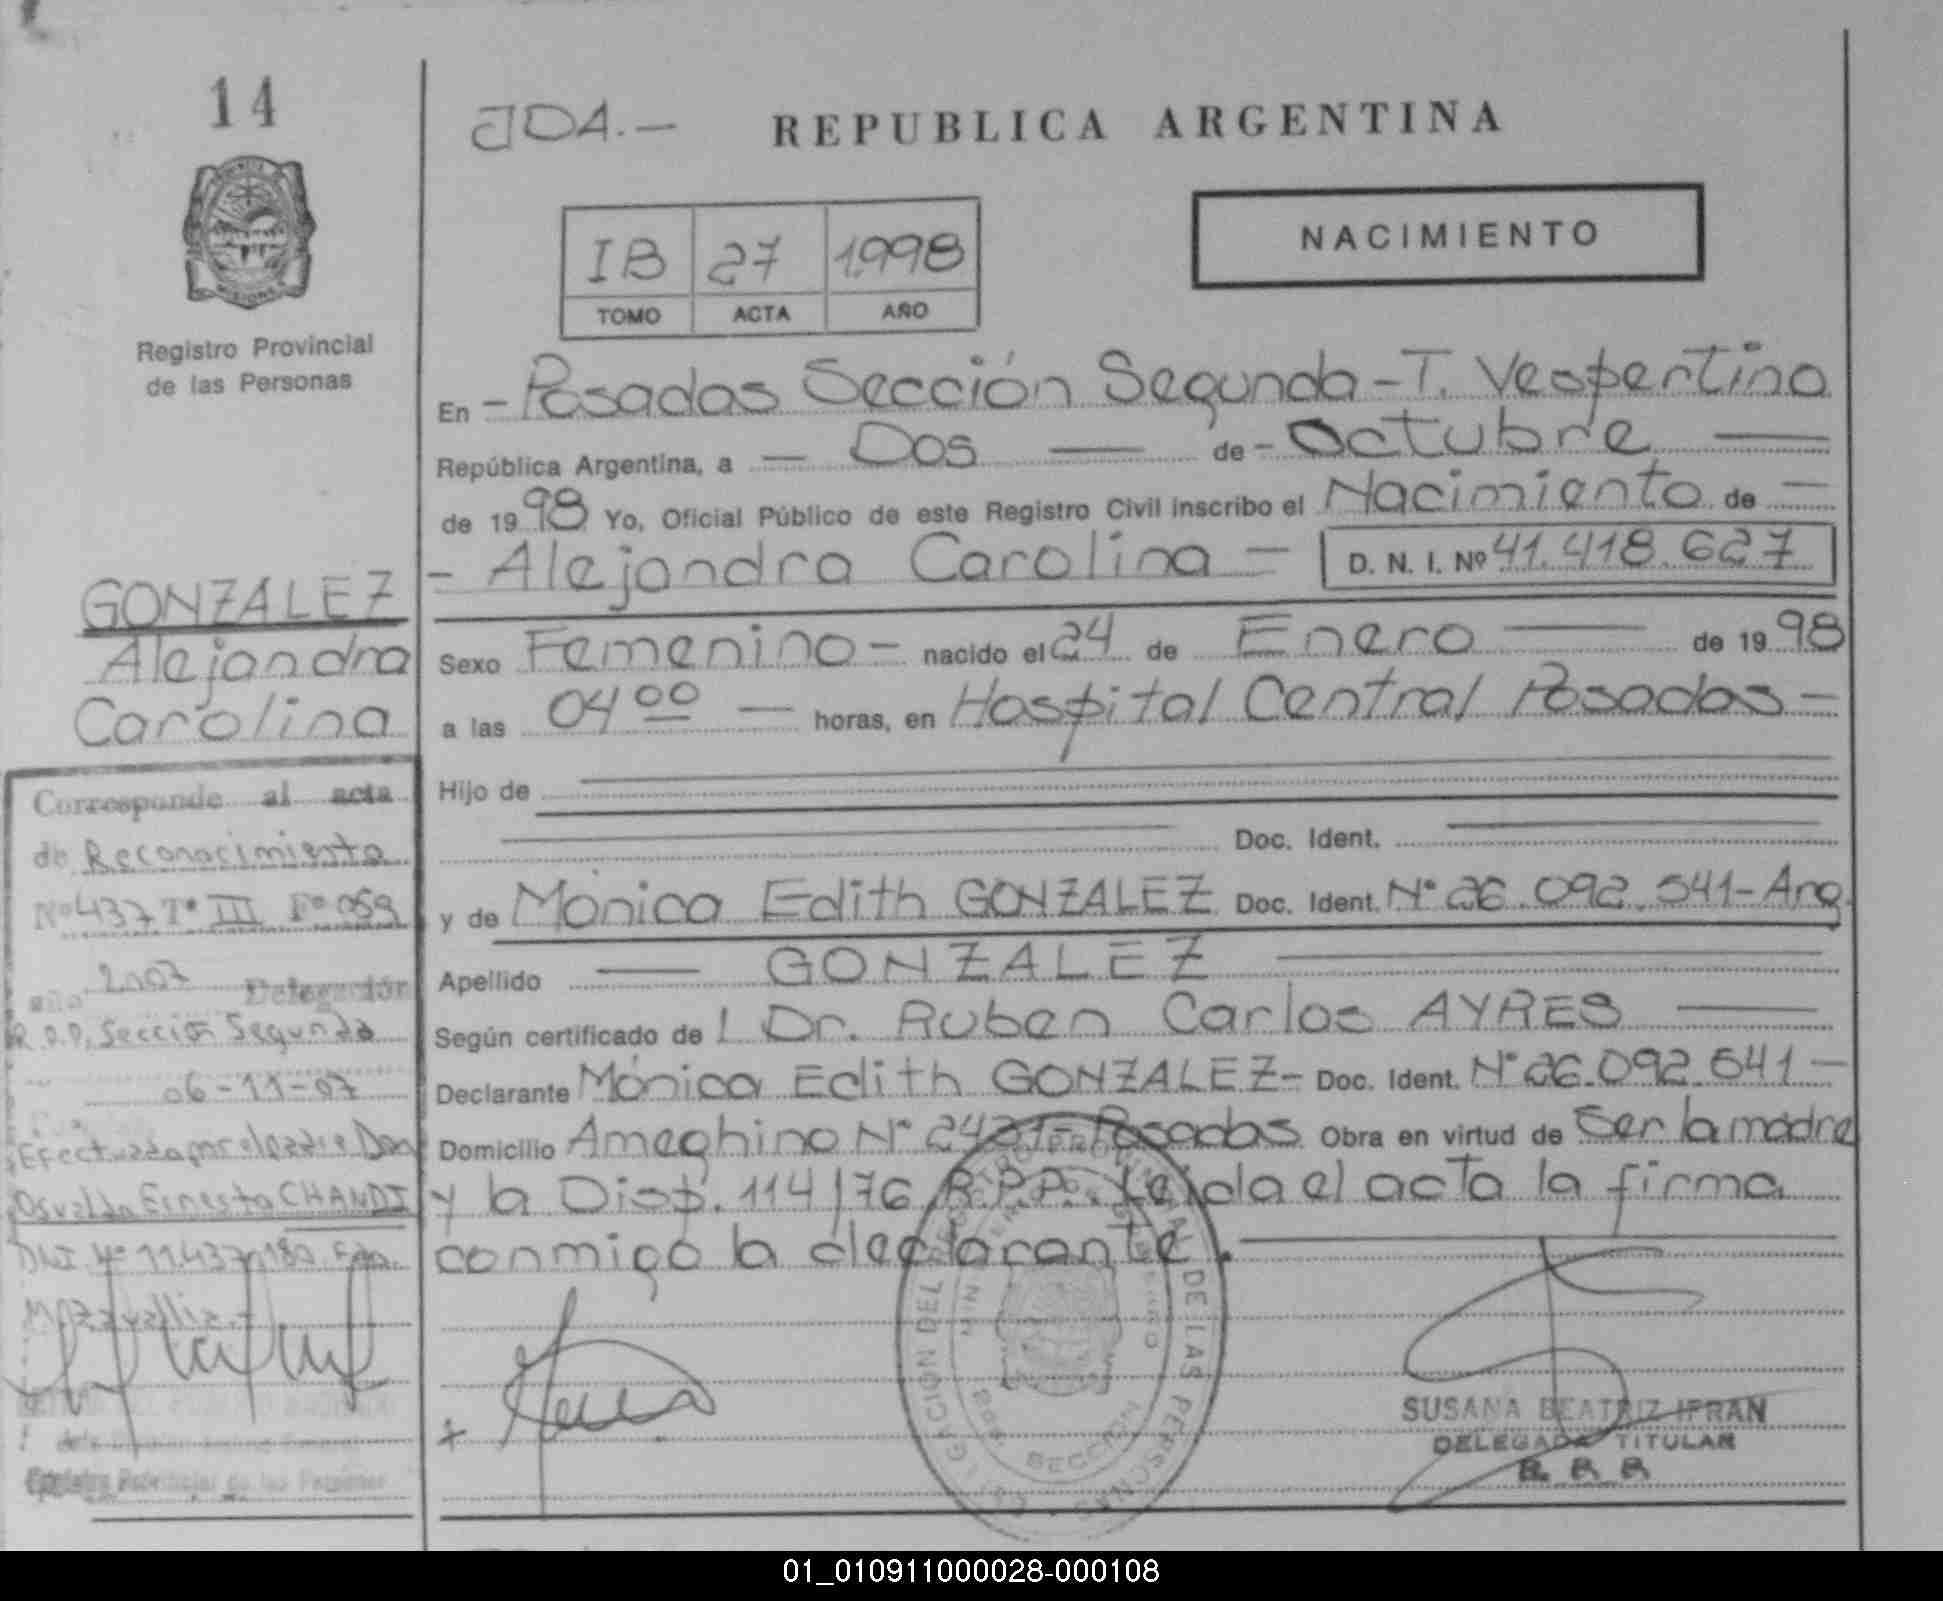 14
JDA.—
REPUBLICA ARGENTINA
NACIMIENTO
IB 27 1.998
TOMO ACTA AÑO
MISIONES
Registro Provincial
de las Personas
En - Posadas Sección Segunda - T. Vespertino
República Argentina, a — Dos — de - Octubre —
de 19 98 Yo, Oficial Público de este Registro Civil inscribo el Nacimiento de —
- Alejandra Carolina — D. N. I. Nº 41.418.627
GONZALEZ
Alejandra
Carolina
Sexo Femenino - nacido el 24 de Enero — de 19 98
a las 04 00 — horas, en Hospital Central Posadas —
Hijo de
Doc. Ident.
y de Mónica Edith GONZALEZ Doc. Ident. Nº 26.092.541 - Arg.
Apellido — GONZALEZ —
Según certificado de l Dr. Ruben Carlos AYRES —
Declarante Mónica Edith GONZALEZ - Doc. Ident. Nº 26.092.541 —
Domicilio Ameghino Nº 2421 - Posadas Obra en virtud de Ser la madre
y la Disp. 114/76 R.P.P. Leída el acta la firma
conmigo la declarante.
Corresponde al acta
de Reconocimiento
Nº 437 Tº III Fº 059
año 2007 Delegación
R.P.P. Sección Segunda
06-11-07
Efectuada por el padre Don
Osvaldo Ernesto CHANDI
DNI Nº 11.437.180
Registro Provincial de las Personas
DELEGACION DEL REGISTRO PROVINCIAL DE LAS PERSONAS
2da. SECCION
SUSANA BEATRIZ IFRAN
DELEGADA TITULAR
01_010911000028-000108